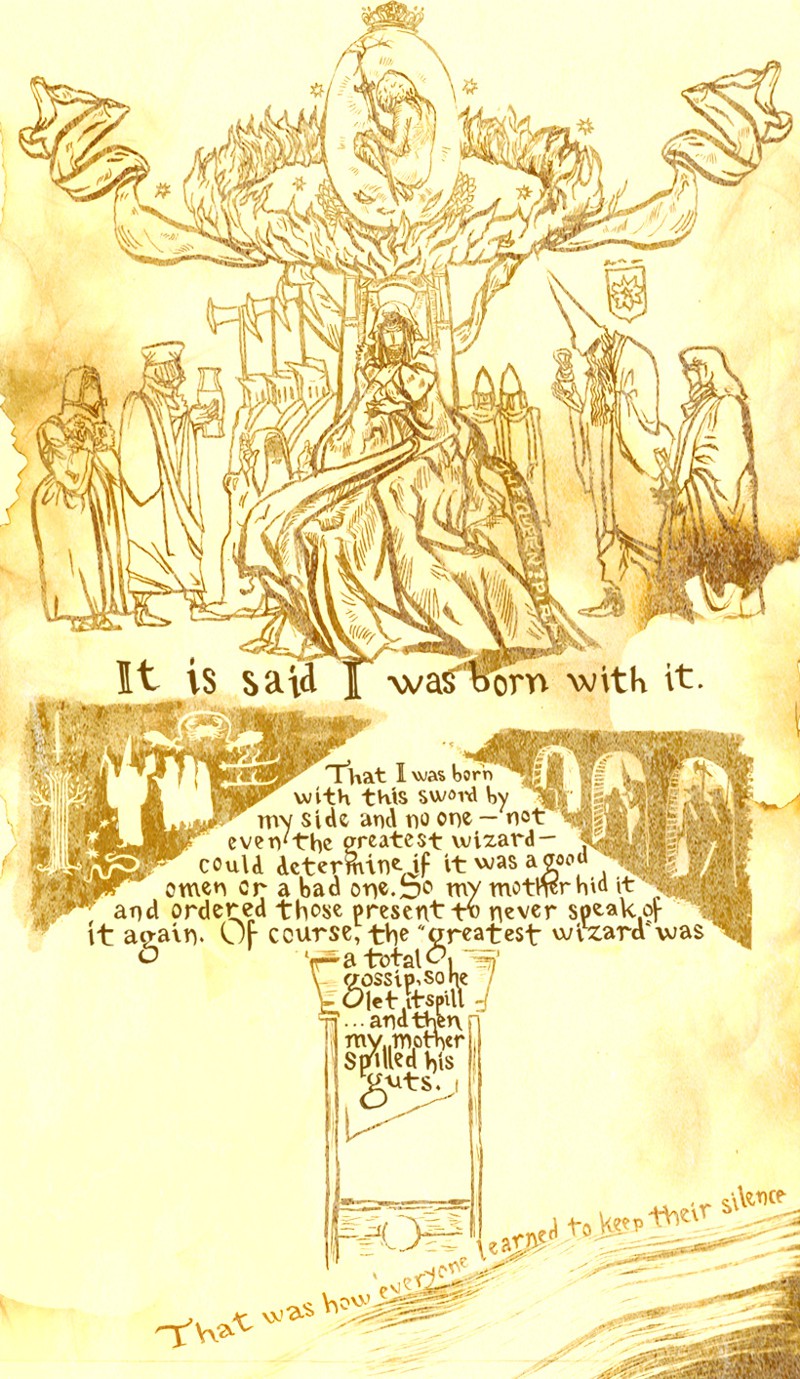 It is said I was born with it.
That I was born
with this sword by
my side and no one — not
even the greatest wizard —
could determine if it was a good
omen or a bad one. So my mother hid it
and ordered those present to never speak of
it again. Of course, the "greatest wizard" was
a total
gossip, so he
let it spill
...and then
my mother
spilled his
guts.
That was how everyone learned to keep their silence